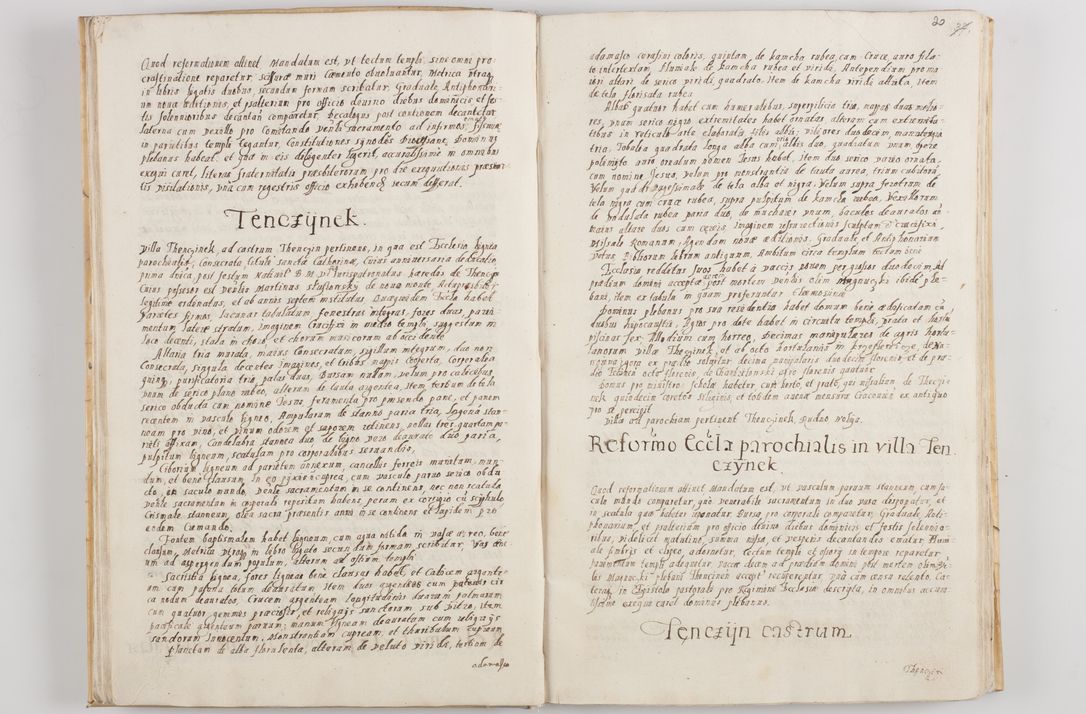 Quod reformationem attinet Mandatum est, vt tectum templi sine omni pro
crastinatione reparetur, muri Cemento obuoluantur, Metrica
in libris ligatis duobus, secundum formam scribatur, Graduale, Antiphonari-
um noua editionis, et psalterium pro officio diuino diebus dominicis, et fes-
tis solennioribus decantan comparetur, Decalogus post contionem decantetur
laterna cum vexillo pro Comitando Sacramento ad infirmos,
in parietibus templi tegantur, Constitutiones synodi Dioecesane, Dominus
plebanus habeat, et qua in eis diligenter legerit, accuratissime in omnibus
exequi curet, literas fraternitatis presbiterorum pro die exequutionis presen-
tis visitationis, vna cum regestris officio exhibend secum differat.
Tenczijnek.
Villa Thenczinek, ad castrum Thenczin pertinens, in qua est Ecclesia lignea
parochialis, Consecrata tituli Sanctae Catherinae, Cuius anniuersaria dedicatio
prima dnica post festum Natiuit B M V Jurispatronatus haeredes de Thenczin
Cuius possessor est venlis Martinus de nouo monte
legitime ordinatus, et ab annis septem institutus Ecclia habet
Parietes firmos, lacunar tabulatum, fenestras integras, fores duas, paui-
mentum latere stratum, Imaginem Crucifixi in medio templi, suggestum in
loco decenti, stala in choro, et chorum musicorum ad occidentem
Altaria tria murata, maius Consecratum, sigillum integrum, duo non
Consecrata, singula decentes imagines, et tribus mappis cooperta, Corporalia
quinq, purificatoria tria, pallas duas, Bursam nullam, velum pro calicibus
vnum de serico plano rubeo, alterum de tauta argentea, Item tertium de tela
serico obducta cum nomine Iesus, feramenta pro pinsendo pane, et panem
recentem in vasculo ligneo, Ampularum de stanno paria tria, Lagena stan-
neam pro vino, et vinum odorem et saporem retinens, nollas tres, quartam pa-
rieti affixam, Candelabra stannea duo, de ligno vero deaurato duo paria,
pulpitum ligneum, scatulam pro corporalibus seruandis,
Ciborium ligneum ad parietem annexum, cancellis ferreis munitum, mun-
dum, et bene clausum, In eo pixis cuprea, cum vasculo paruo serico obdu
cto, et saculo mundo, venle sacramentum in se continens, nec non scatula
venle sacramentum in corporali repositum habens peram ex corrigio cu sciphulo
Crismale stanneum, olea sacra praesentis anni in se continens et lapidem pro
eodem Cremando.
Fontem baptismalem habet ligneum, cum aqua nitida in vase aereo, bene
clausum, Metrica in libro ligato secundum formam scribitur, vas
um ad aspergendum populum, alterum ad ostium templi
Sacristia lignea, fores ligneas bene clausas habet, et Calicem argente-
um cum patena totum deauratum Item duos argenteos cum patenis cir
ca nodum deauratos, Crucem argenteam longitudinis duarum palmarum
cum quatuor gemmis praeciosis, et religijs sanctorum sub vitro, Item
pacificale argenteum paruum, manum ligneam deauratam cum religijs
Sanctorum Innocentum, Monstrantiam cupream, et thuribulum cupreum
Planetam de alba florulenta, alteram de veluto viridi, tertiam de
adamasco
20
adamasco cerafini coloris, quintam de kamcha rubea cum Cruce auro fila-
to intertextam, Humale de kamcha rubea et viridi, Antependium pro ma
iori altari de serico viridi quadrato, Item de kamcha viride alterum, item
de tela florisata rubea
Albas quatuor habet cum humeralibus, superpilicia tria, mappas duas melio-
res, vnam serico nigro extremitates habet ornatas, alteram cum extremita-
tibus in reticuli arte elaborata filis albis, viliores duodecem, manutergia
tria, Tobalea quadrata longa alba cum filis albis duo, quadratum vnum opere
polimito auro ornatum nomen Iesus habet, Item duo serico vario ornata,
cum nomine Iesus, velum pro monstrantia de tauta aurea, trium cubitorum
Velum quadragesimale de tela alba et nigra, Velum supra feretrum de
tela nigra cum cruce rubea, supra pulpitum de kamcha rubea, Vexillorum
de undulata rubea paria duo, de muchaier vnum, baculos deauratos an
maius altare duos cum cereis, imaginem resurectionis sculptam et crucifixi,
Missale Romanum, Agendam nouae aeditionis, Graduale, et Antiphonarium
vetus, Bibliorum librum antiquum, Ambitum circa templum tectum bene
Ecclesia redditus suos habet à vaccis nouem per grossos duodecim, Ad
praedium domini accepta post mortem venlis olim Magnuczki ibide ple-
bani, item ex tabula in quam proferuntur Eleemosinae
Dominus plebanus pro sua residentia habet domum bene aedificatam cu
duobus hipocaustis, Agros pro dote habet in circuitu templi, prata et horta
piscinas sex, Allodium cum horreo, Decimas manipulares de agris hortu-
lanorum villa Thenczinek, et ab octo hortulanis in
nonus ex praedio soluitur decima manipularis duodecim florenis et de prae-
dio octo florenis, de Charzkimski octo florenis quatuor
Domus pro ministro scholae habetur cum horto, et prato, qui misalium de Thenczi-
nek quindecim coretos siliginis, et totidem auenae mensurae Cracouien ex antiquo
pro se percipit
Villae ad parochiam pertinent Thenczinek, Rudno Wolya.
Reformo Eccla parochialis in villa Ten
czynek.
Quod reformationem attinet Mandatum est, vt vasculum paruum stanneum cum sa-
culo mundo comparetur, quo venerabile sacramentum in duo vasa disponatur, et
in scatula quo habetur imponatur Bursa pro corporali comparetur, Graduale, Anti-
phonarium, et psalterium pro officio diuino diebus dominicis et festis solennio-
ribus, videlicet matutino, summa missa, et vesperis decantandis ematur, Hum-
ale fimbris et clipeo, adornetur, tectum templi et ossorij in tempore reparetur.
pauimentum templi adequetur, vaccae decem ad praedium domini post mortem olim ven-
lis Magnuczki plebani Thenczinen acceptae recuperentur, vna cum censu retento, Ca-
terua, in Epistola pastorali pro Regimine Ecclesiae descripta, in omnibus accura
tissime exequi curet dominus plebanus.
Tenczijn castrum
Thenczin